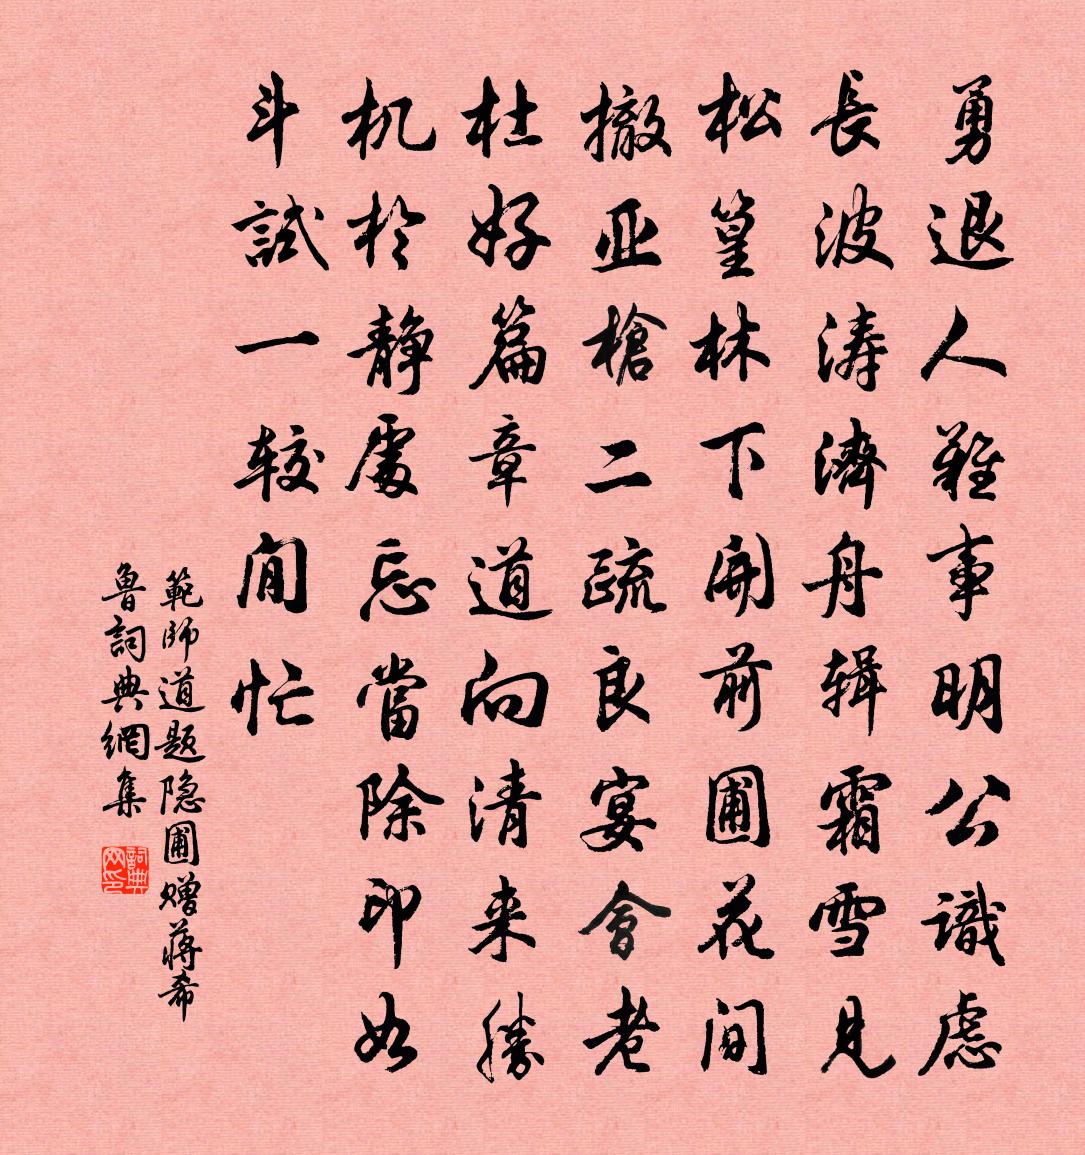 勇退人難事明公識慮
長波涛濟舟辑霜雪見
松篁林下開前圃花間
撤亚槍二疏良宴會老
杜好篇章道向清来勝
机於靜處忘當除印如
斗試一较閒忙
範師道题隐圃赠蒋希
魯詞典網集
詞典网印